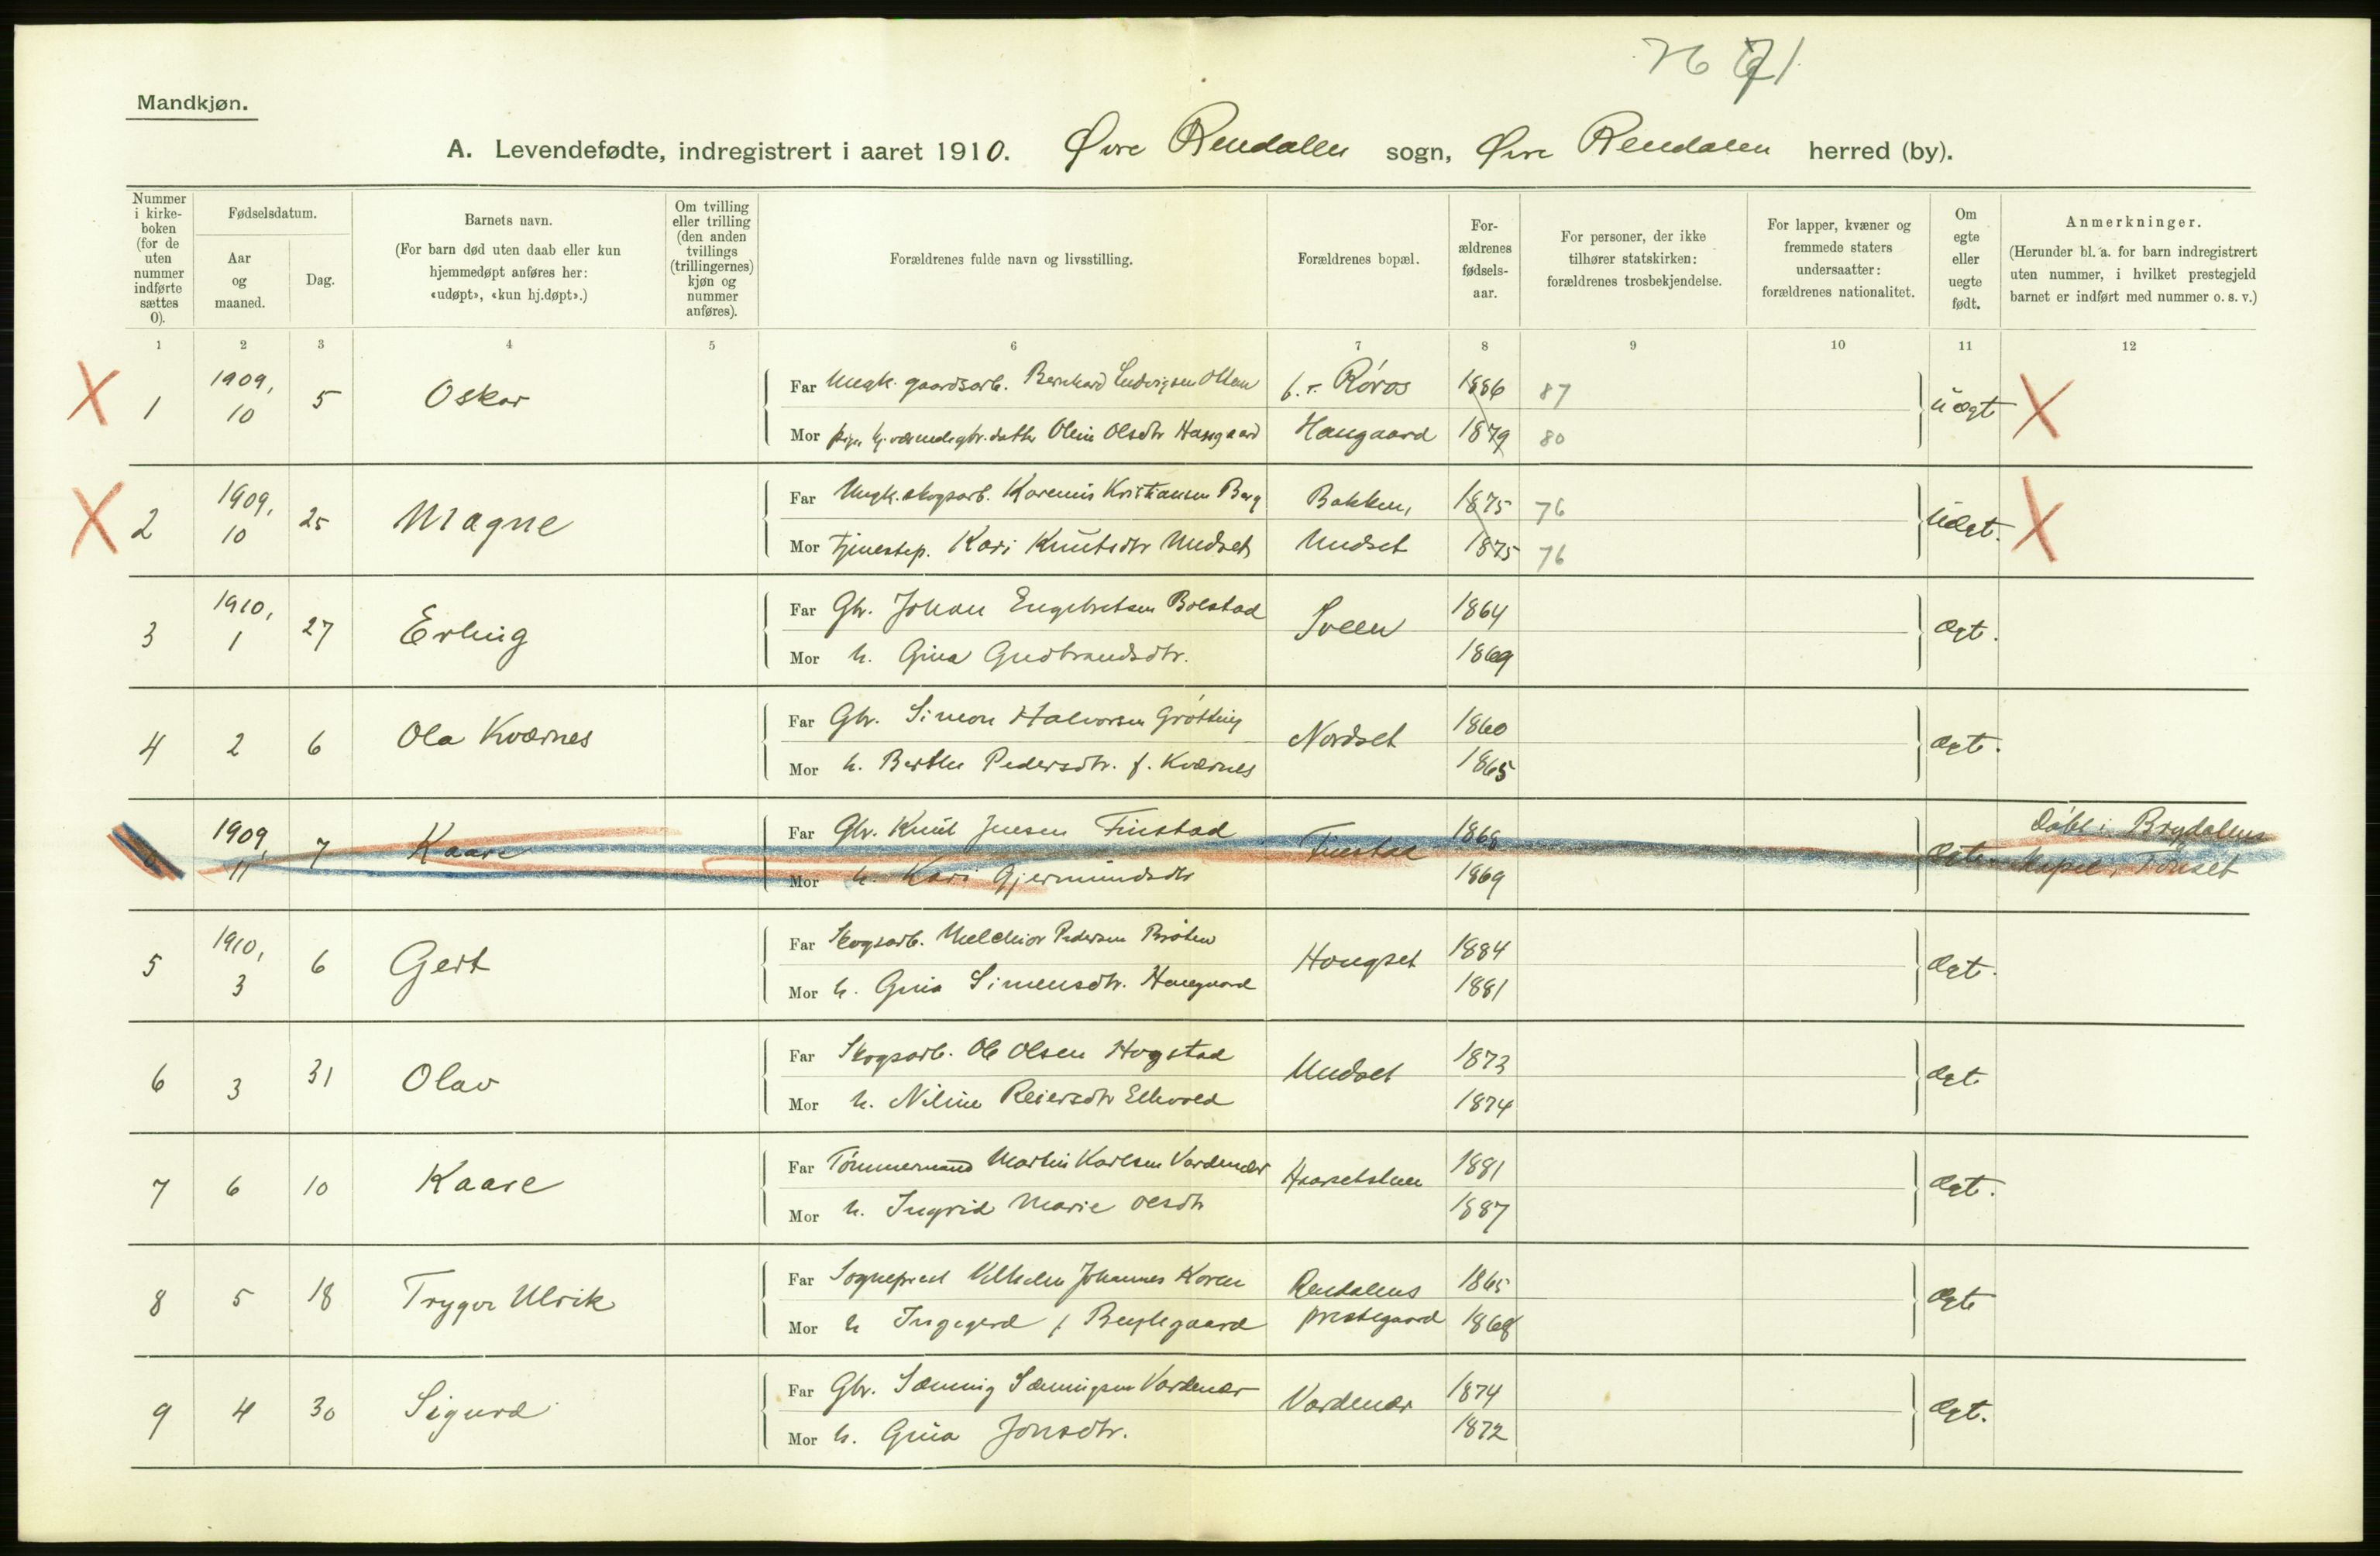 76 71
Mandkjøn.
A. Levendefødte, indregistrert i aaret 1910. Øvre Rendalen sogn, Øvre Rendalen herred (by).
Nummer i kirke- boken (for de uten nummer indførte sættes 0).
Fødselsdatum.
Aar og maaned.
Dag.
Barnets navn.
(For barn død uten daab eller kun hjemmedøpt anføres her: «udøpt», «kun hj.døpt».)
Om tvilling eller trilling (den anden tvillings (trillingernes) kjøn og nummer anføres).
Forældrenes fulde navn og livsstilling.
Forældrenes bopæl.
For- ældrenes fødsels- aar.
For personer, der ikke tilhører statskirken: forældrenes trosbekjendelse.
For lapper, kvæner og fremmede staters undersaatter: forældrenes nationalitet.
Om egte eller uegte født.
Anmerkninger.
(Herunder bl. a. for barn indregistrert uten nummer, i hvilket prestegjeld barnet er indført med nummer o. s. v.)
1 2 3 4 5 6 7 8 9 10 11 12
X 1 1909, 10 5 Oskar uægt X
Far Ungk. gaardsarb. Bernhard Ludvigsen Olsen f. r. Røros 1886 87
Mor Olsdtr Haugaard Haugaard 1879 80
X 2 1909, 10 25 Magne uægt. X
Far Ungk. skogsarb. Karenius Kristiansen Berg Bakken, 1875 76
Mor Tjenestep. Kari Knutsdtr Undset Undset 1875 76
3 1910, 1 27 Erling ægt.
Far Gbr. Johan Engebretsen Bolstad Sveen 1864
Mor h. Gina Gudbrandsdtr. 1869
4 2 6 Ola Kværnes ægt.
Far Gbr. Simon Halvorsen Grøtting Nordset 1860
Mor h. Berthe Pedersdtr. f. Kværnes 1865
1909, 11 7 Kaare ægte Døbt i Brydalens kapel, Tønset
Far Gbr. Knut Jensen Finstad Finstad 1868
Mor h. Kari Gjermundsdtr 1869
5 1910, 3 6 Gert ægt.
Far Skogsarb. Melchior Pedersen Bråten Hougset 1884
Mor h. Gina Simensdtr. Haugaard 1881
6 3 31 Olav ægt
Far Skogsarb. Ole Olsen Hogstad Undset 1873
Mor h. Niline Reiersdtr Elhvold 1874
7 6 10 Kaare ægt.
Far Tømmermand Martin Karlsen Vardenær Haarsetstuen 1881
Mor h. Ingrid Marie Olsdtr 1887
8 5 18 Trygve Ulrik ægte
Far Sogneprest Vilhelm Johannes Koren Rendalens 1865
Mor h Ingegerd f Bergh­gaard prestegaard 1868
9 4 30 Sigurd ægt.
Far Gbr. Sæming Sæmingsen Vardenær Vardenær 1874
Mor h. Gina Jonsdtr. 1872